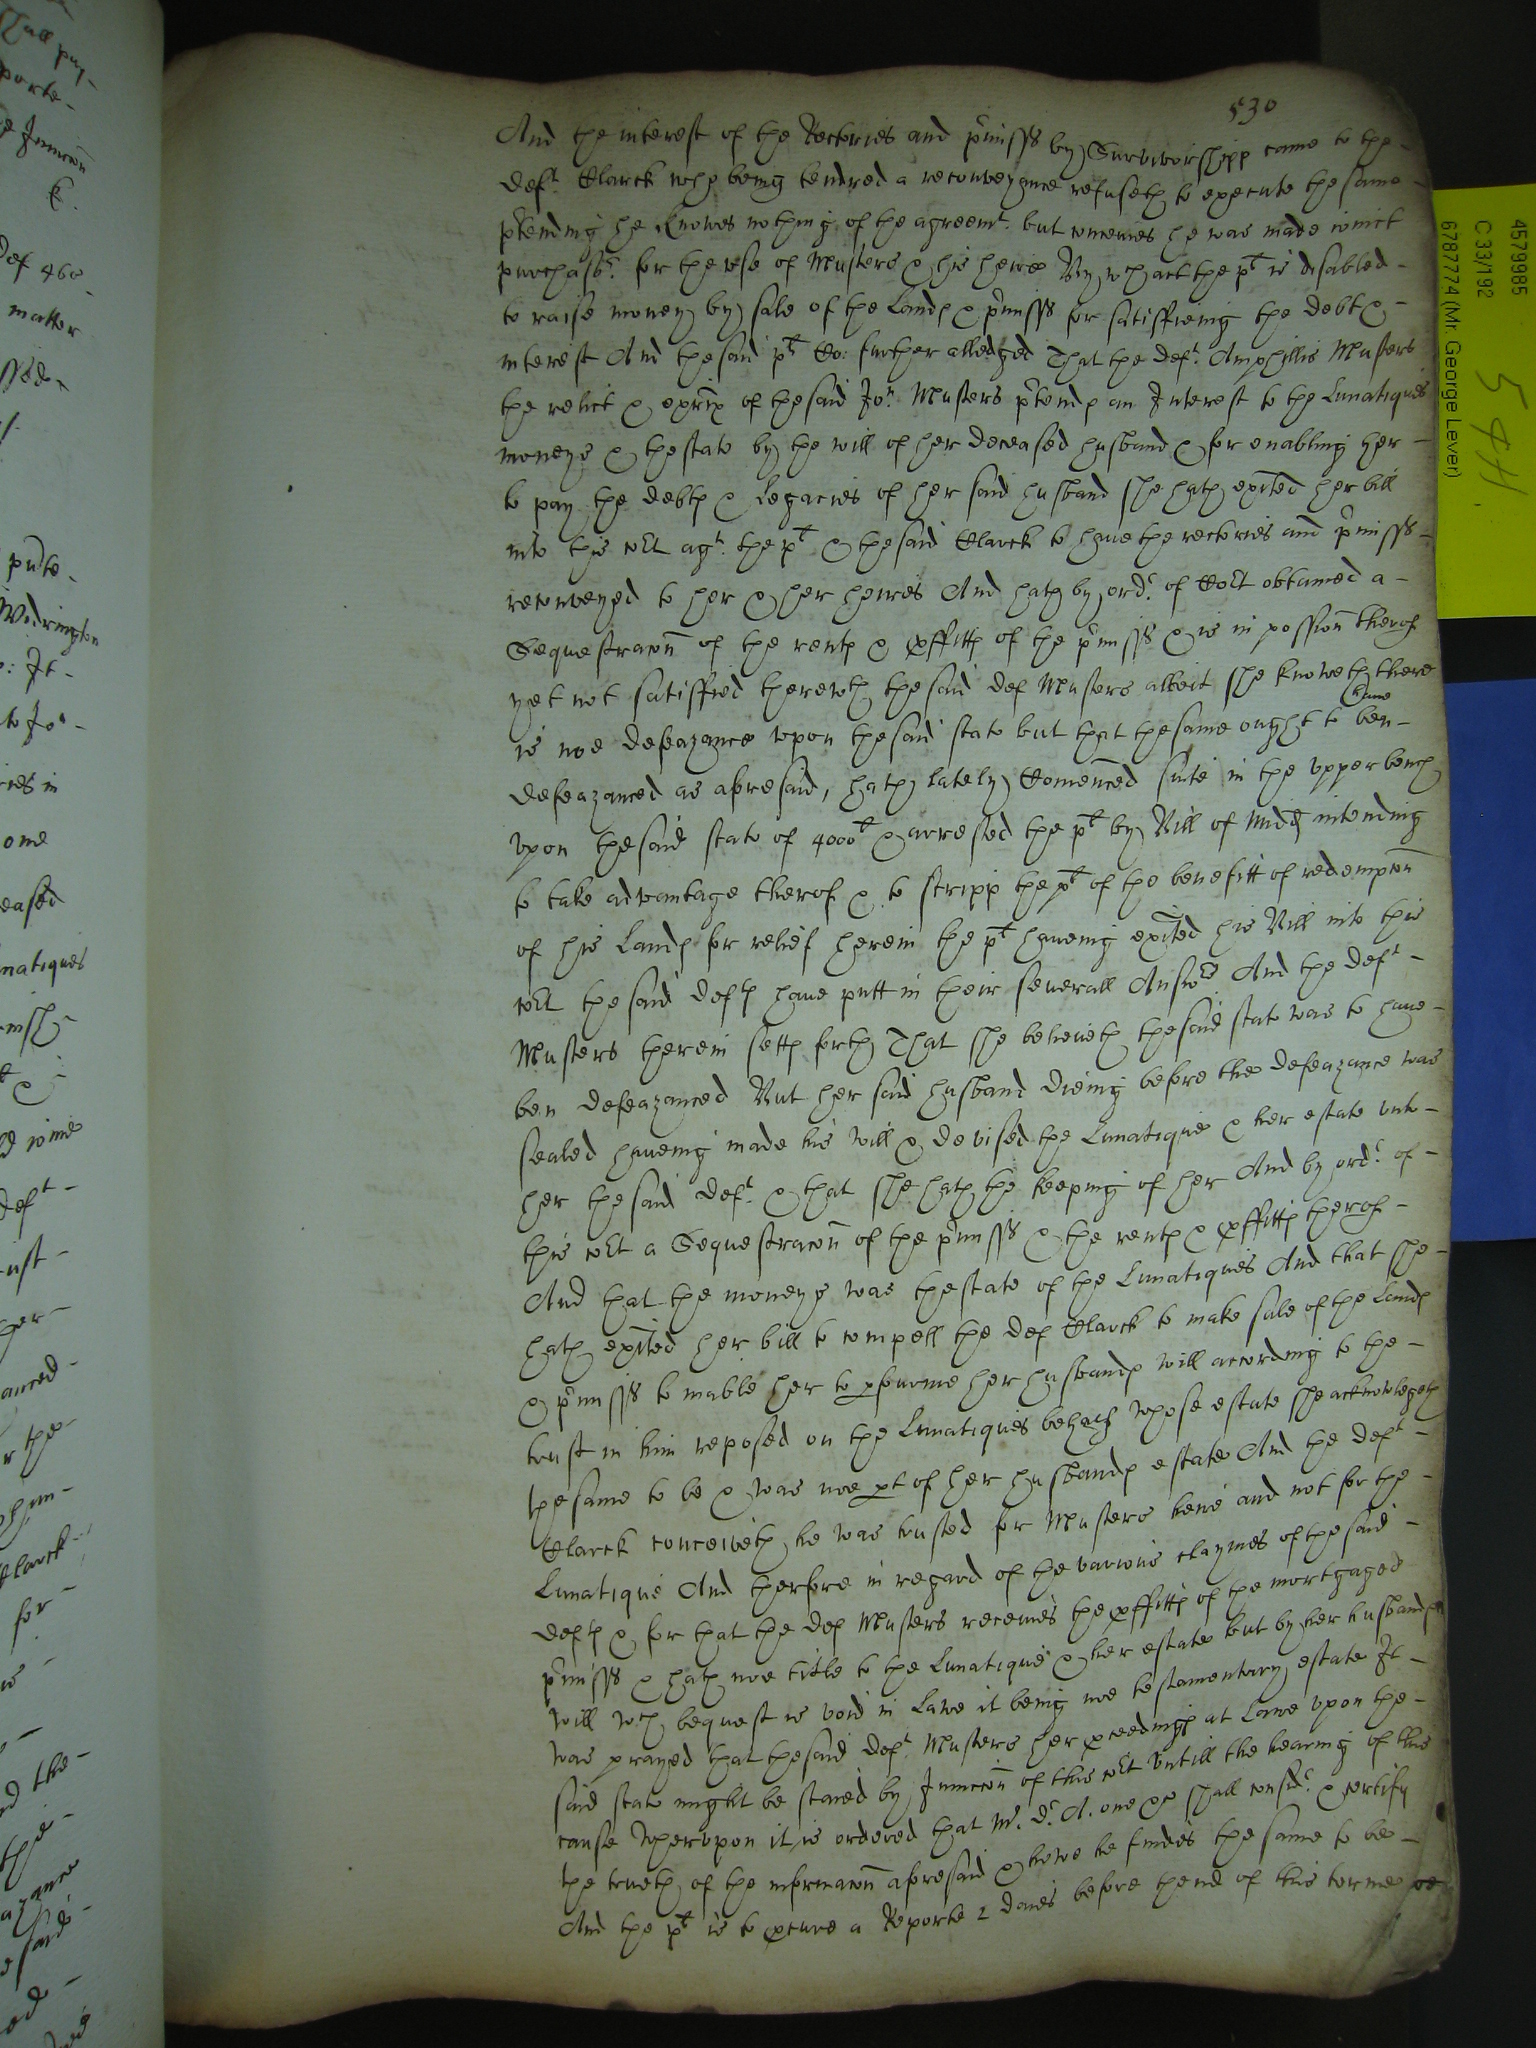 530
And the interest of the Rectories and p'miss's by Survivorshipp came to the
Deft. Clarck who being tendred a reconveyance refuseth to execute the same
p'tending he knowes nothing of the agreemt. but conceives he was made ioinct
purchasr. for the use of Musters & his heires By wch act the plt is disabled
to raise money by sale of the Lands & p'miss's for satisfieing the debt &
interest And the said plt Co: further alledged That the Deft. Amphillis Musters
the relict & exrix of the said Jon. Musters p'tends an Interest to the Lunatiques
moneys & the state by the will of her deceased husband & for enabling her
to pay the debts & Legacies of her said husband she hath exited her bill
into this cort agt. the plt & the said Clarck to have the rectories and p'miss's
reconveyed to her & her heires And hath by ordr. of Cort obtained a
Sequestracon of the rents & pffitts of the p'miss's & is in possion therof
yet not satisfied therewth the said Def Musters albeit she knoweth there
is noe defeazance upon the said state but that the same ought to have ben
defeazanced as aforesaid, hath lately Comenced suite in the upper bench
upon the said state of 4000l & arrested the plt by Bill of Midd intending
to take advantage therof & to stripp the plt of the benefitt of redempcon
of his Lands for relief herein the plt haveing exited his Bill into this
cort the said Defts have putt in their severall Answrs And the Deft
Musters therein setts forth That she believeth the said state was to have
ben defeazanced But her said husband Dieing before the defeazance was
sealed haveing made his will & devised the Lunatique & her estate unto
her the said Deft. & that she hath the keeping of her And by ordr. of
this cort a Sequestracon of the p'miss's & the rents & pffitts therof
And that the moneys was the state of the Lunatiques And that she
hath exited her bill to compell the Def Clarck to make sale of the Lands
& p'miss's to inable her to pfourme her husbands will according to the
trust in him reposed on the Lunatiques behalf whose estate she acknowlegeth
the same to be & was noe pt of her husbands estate And the Deft
Clarck conceiveth he was trusted for Musters heire and not for the
Lunatique And therfore in regard of the various claymes of the said
Defts & for that the Def Musters receives the pffitts of the mortgaged
p'miss's & hath noe title to the Lunatique & her estate but by her husbands
will wch bequest is void in Lawe it being noe testamentary estate It
was prayed that the said Deft. Musters her pceedings at Lawe upon the
said state might be staied by Iniuccon of this cort untill the hearing of this
cause Wherupon it is ordered that Mr. Dr. A. one &c shall consdr. & certify
the trueth of the informacon aforesaid & howe he findes the same to be
And the plt is to pcure a Reporte 2 daies before thend of this terme
4579985
C 33/192
6787774 (Mr. George Lever)